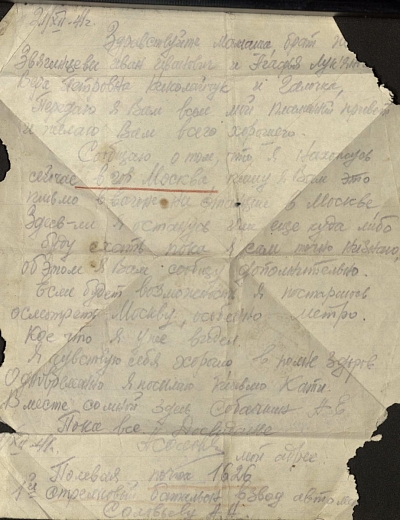 29/XII-41г.
Здравствуйте мамаша, брат
Звягинцевы Иван Иванович и
Вера Петровна и Галочка,
Передаю я Вам всем мой пламенный привет
и желаю Вам всего хорошего.
Сообщаю о том, что я нахожусь
сейчас в гор Москва пишу я Вам это
письмо в вагоне на станции в Москве
Здесь-ли я останусь или еще куда либо
буду ехать пока я сам точно не знаю,
об этом я Вам сообщу дополнительно.
Если будет возможность я постараюсь
осмотреть Москву, особенно метро.
Кое что я уже видел.
Я чувствую себя хорошо в полне здоров
Одновременно я посылаю письмо Кате.
Вместе со мной здесь Собачкин А.Е.
Пока все и до свидания
XII-41г.
мой адрес
Полевая почта 1626
1й стрелковый батальон взвод автом
Соловьеву А.